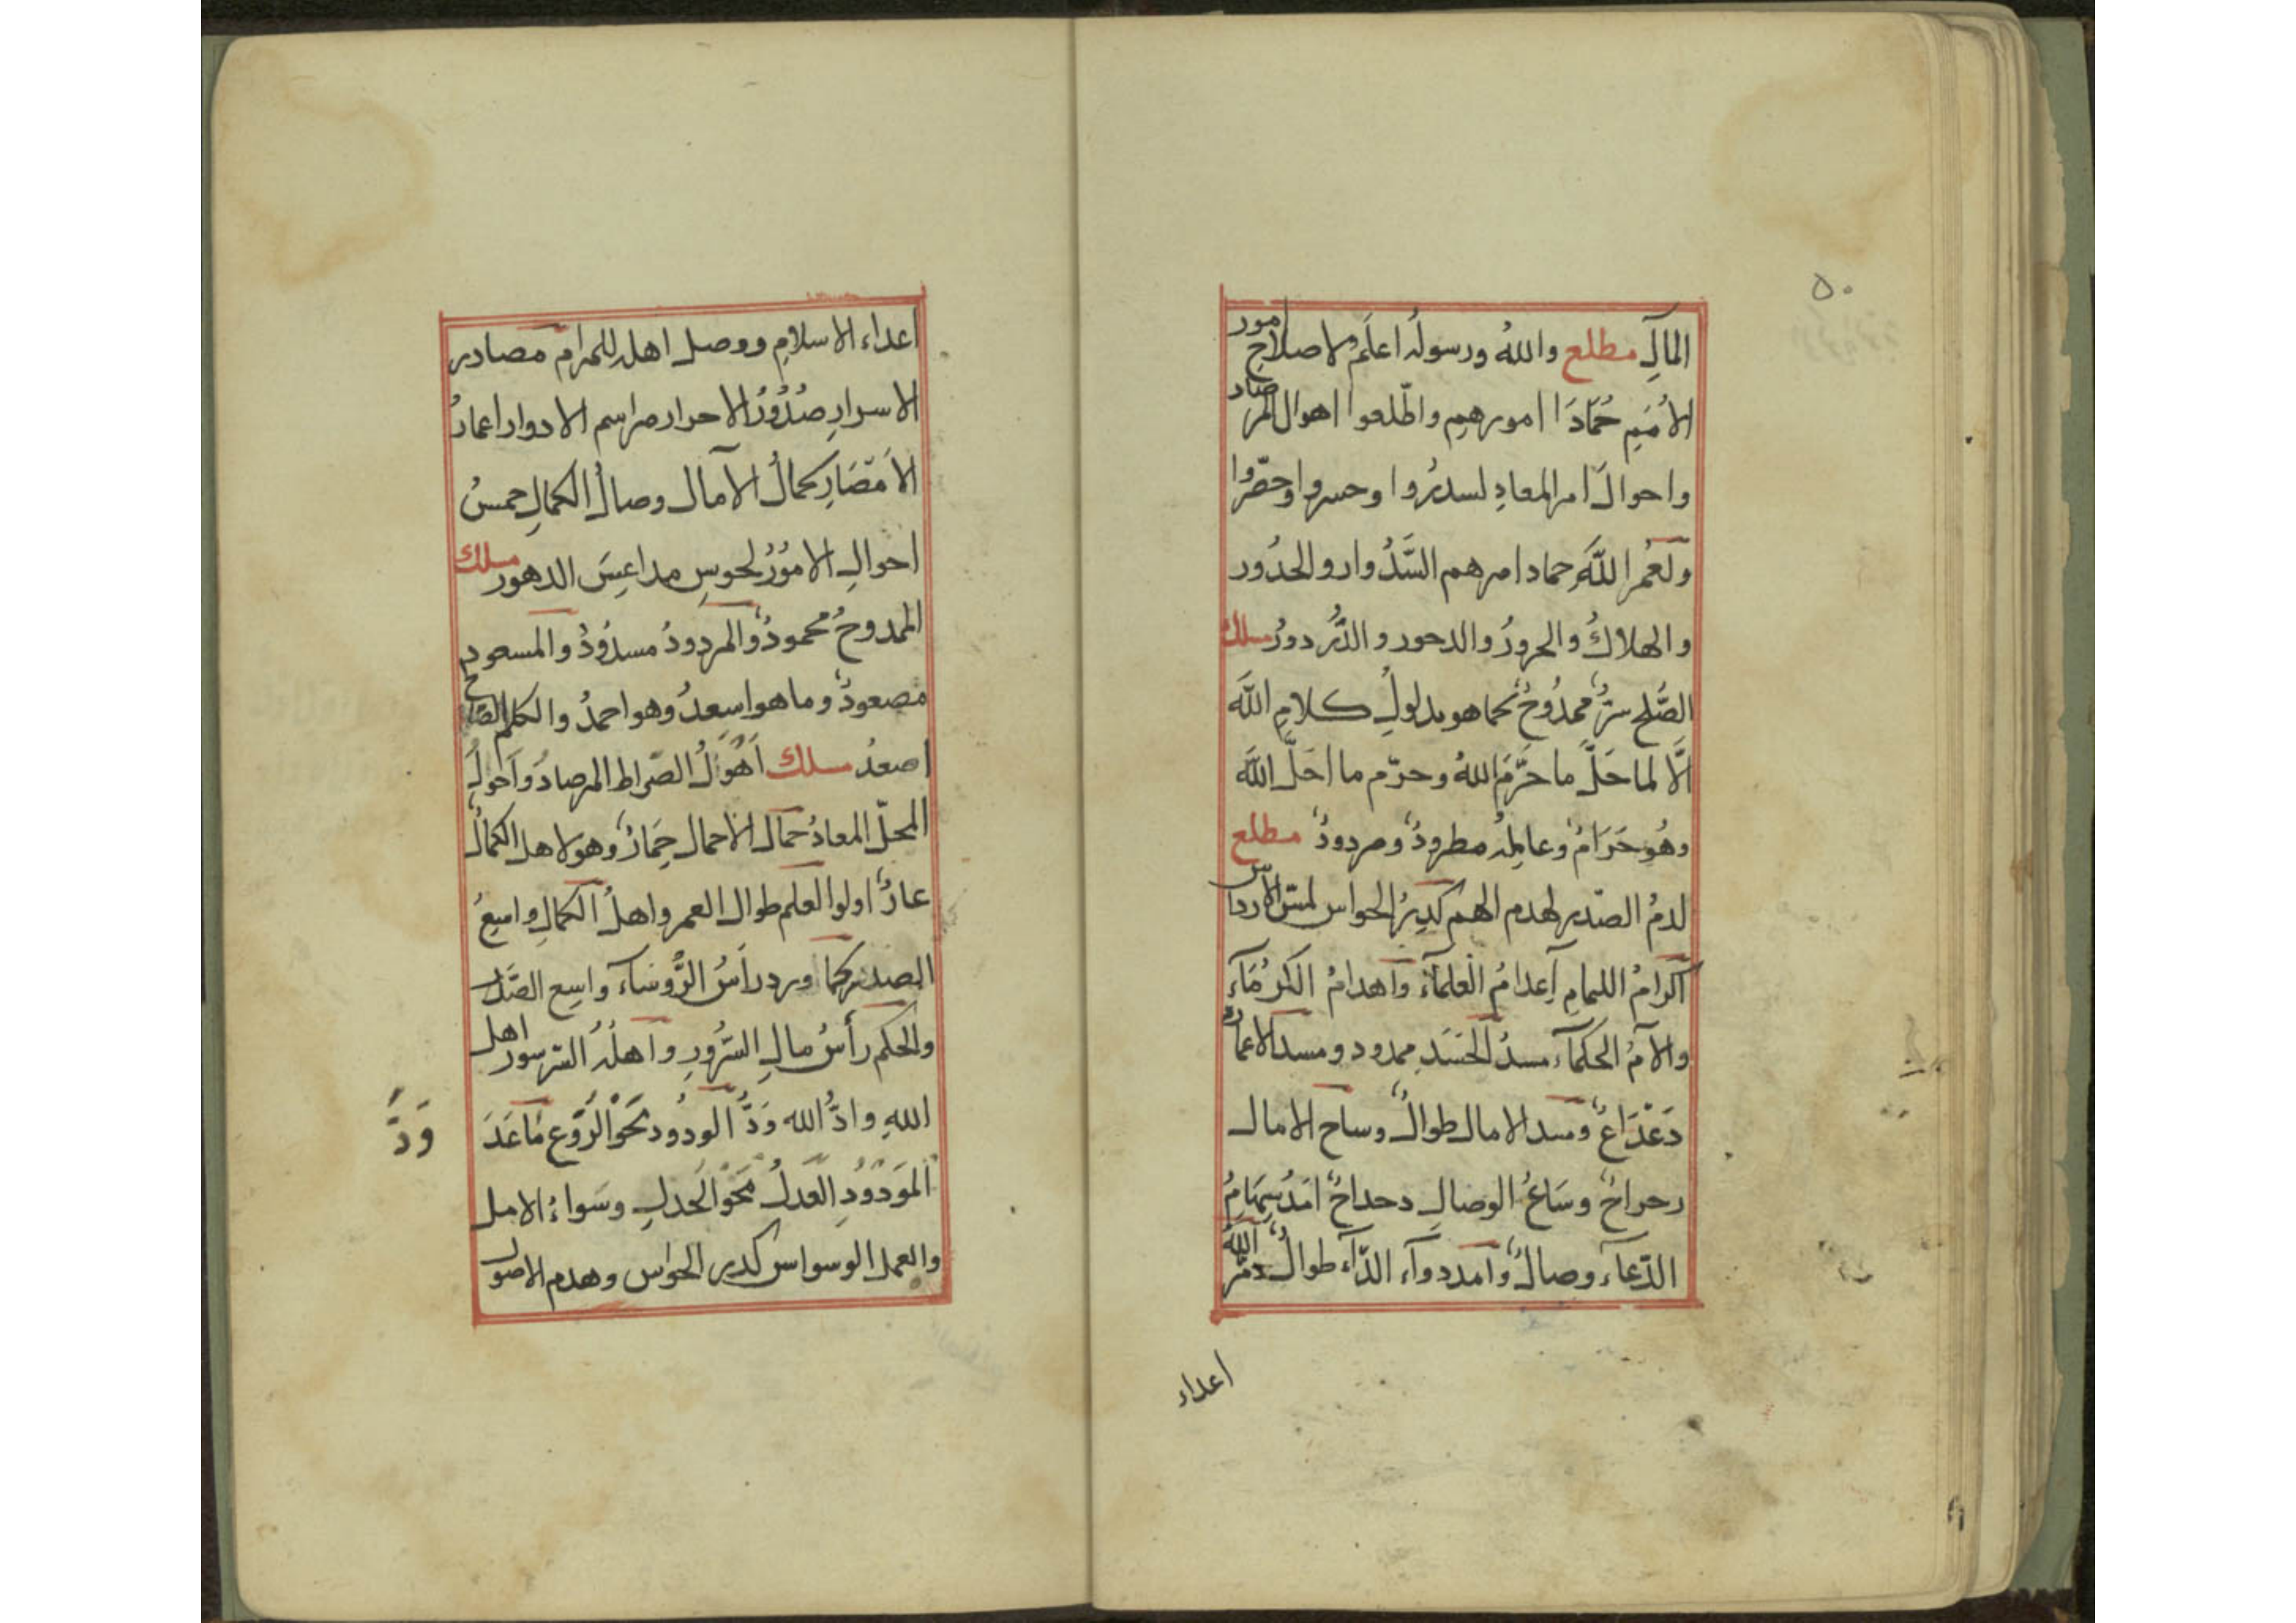 ٥٠
المآلِ مطلع والله ورسوله اعلم ولاصلاح امور
الاُمَمِ حُمّادَا امورهم واطّلعوا اهوال المرصاد
واحوالَ امر المعادِ لسدرُوا وحسروا وحصّروا
ولعُمر اللّٰهِ حماد امرهم السَّدُوار والحدُور
والهلاكُ والحرورُ والدحور والدُّردورُ مسلك
الصُّلح سرٌّ ممدُوحٌ كما هو مدلولُ كلامِ اللّٰه
الَّا لما حَلَّ ما حَرَّمَ اللهُ وحرّم ما احَلَّ اللّٰه
وهُو حَرَامٌ وعامِلُه مطرودٌ ومردودٌ مطلع
لدمُ الصّدر لهدم الهم كدِرُ الحواس لمسّ الارداس
اكرامُ اللهامِ اِعدامُ العلمآءِ واهدامُ الكرمَآءِ
والآمُ الحكمآء مسدُ الحَسَدِ ممدود ومسد الاعمار
دَعْدَاعٌ ومسد الامال طوالٌ وساح الامال
رحراحٌ وسَاعُ الوصالِ دحداحٌ امَدُ سِهَامُ
الدّعآء وصالٌ وامد دوآء الدّآء طوالٌ دمّر اللّٰه
اعداء
اعداء الاسلام ووصل اهله للمرام مصادر
الاسرارِ صُدُورُ الاحرار مراسم الادوار اعمارُ
الاَمْصَارِ كمالُ الآمال وصالُ الكمالِ حمسُ
احوالِ الامُورُ لحوسِ مداعِسَ الدهور مسلك
الممدوحُ محمودٌ والمردودُ مسدُودٌ والمسعود
مصعودٌ وما هو اسعدُ وهو احمدُ والكلم الصّالح
اصعدُ مسلك اَهْوَلُ الصّراط المرصادُ واَحْوَلُ
المحلّ المعادُ حمال الاحمال حِمَارٌ وهو لاهل الكمال
عارٌ اولوا العلم طوال العمر واهلُ الكمالِ واسِعُ
الصدر كما ورد رأسُ الرُّوسَآء واسِع الصَّدر
والحكم رأسُ مالِ السُّرُورِ واهلُه السّرسور اهل
اللهِ وادُّ الله وَدُّ الودُود نحو الرَّوع مَا عَدَ
وَدَّ
المَودُودِ العَدلُ مَحَو الحَدلِ وسَواءُ الامل
والعمل الوسواس كدر الحواس وهدم الاصول